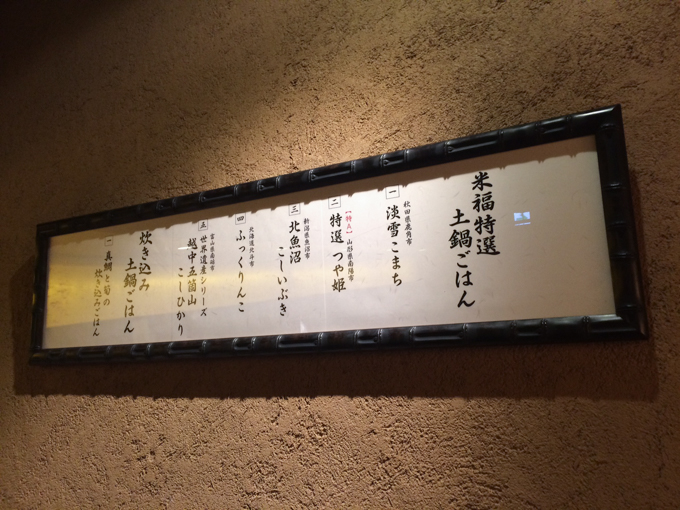 米福特選
土鍋ごはん
一 秋田県鹿角市
淡雪こまち
二 【特A】 山形県南陽市
特選 つや姫
三 新潟県魚沼市
北魚沼
こしいぶき
四 北海道北斗市
ふっくりんこ
五 富山県南砺市
世界遺産シリーズ
越中五箇山
こしひかり
炊き込み
土鍋ごはん
一 真鯛と筍の
炊き込みごはん